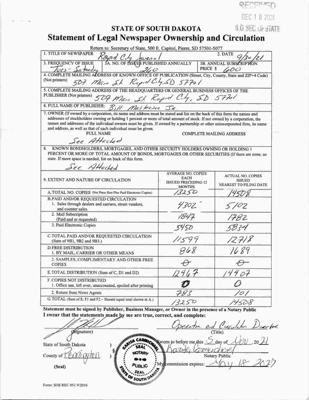 DEC 1 8 2021
STATE OF SOUTH DAKOTA
Statement of Legal Newspaper Ownership and Circulation
Return to: Secretary of State, 500 E Capitol, Pierre, SD 57501-5077
1. TITLE OF NEWSPAPER Rapid City Journal
2. DATE 9/30/21
3. FREQUENCY OF ISSUE
3A. NO. OF ISSUES PUBLISHED ANNUALLY
3B. ANNUAL SUBSCRIPTION PRICE $ 600
4. COMPLETE MAILING ADDRESS OF KNOWN OFFICE OF PUBLICATION (Street, City, County, State and ZIP+4 Code)
(Not printers) 507 Main St Rapid City, SD 57701
5. COMPLETE MAILING ADDRESS OF THE HEADQUARTERS OR GENERAL BUSINESS OFFICES OF THE
PUBLISHER (Not printers) 507 Main St Rapid City, SD 57701
6. FULL NAME OF PUBLISHER: Bill
7. OWNER (If owned by a corporation, its name and address must be stated and also the names and
addresses of stockholders owning or holding 1 percent or more of total amount of stock. If not owned by a corporation, the
names and addresses of the individual owners must be given. If owned by a partnership or other unincorporated firm, its name
and address, as well as that of each individual must be given.
FULL NAME COMPLETE MAILING ADDRESS
See Attached
8. KNOWN BONDHOLDERS, MORTGAGEES, AND OTHER SECURITY HOLDERS OWNING OR HOLDING 1
PERCENT OR MORE OF TOTAL AMOUNT OF BONDS, MORTGAGES OR OTHER SECURITIES (If there are none, so
state. If more space is needed, list on back of this form.
See Attached
9. EXTENT AND NATURE OF CIRCULATION
AVERAGE NO. COPIES EACH ISSUED PRECEDING 12 MONTHS
ACTUAL NO. COPIES ISSUED NEAREST TO FILING DATE
A. TOTAL NO. COPIES 13250 14508
B. PAID AND/OR REQUESTED CIRCULATION
1. Sales through dealers and carriers, street vendors, and counter sales 4302 5102
2. Mail Subscription (Paid and or requested) 1847 1782
3. Paid Electronic Copies 5450 5834
C. TOTAL PAID AND/OR REQUESTED CIRCULATION
(Sum of 9B1, 9B2 and 9B3.) 11599 12718
D. FREE DISTRIBUTION
1. BY MAIL, CARRIER OR OTHER MEANS 868 1689
2. SAMPLES, COMPLIMENTARY AND OTHER FREE COPIES
E. TOTAL DISTRIBUTION (Sum of C, D1 and D2) 12467 14407
F. COPIES NOT DISTRIBUTED
1. Office use, left over, unaccounted, spoiled after printing 0 0
2. Return from News Agents 783 101
G. TOTAL (Sum of E, F1 and F2 – Should equal total shown in A.) 13250 14508
Statement must be signed by Publisher, Business Manager, or Owner in the presence of a Notary Public
I swear that the statements made by me are true, correct, and complete:
(Signature) Operation and Circulation Director (Title)
State of South Dakota
County of Pennington
(Seal)
SEAL
NOTARY
PUBLIC
SOUTH DAKOTA
Sworn to before me this 5 day of Nov. 2021
Notary Public
My commission expires: May 18 2027